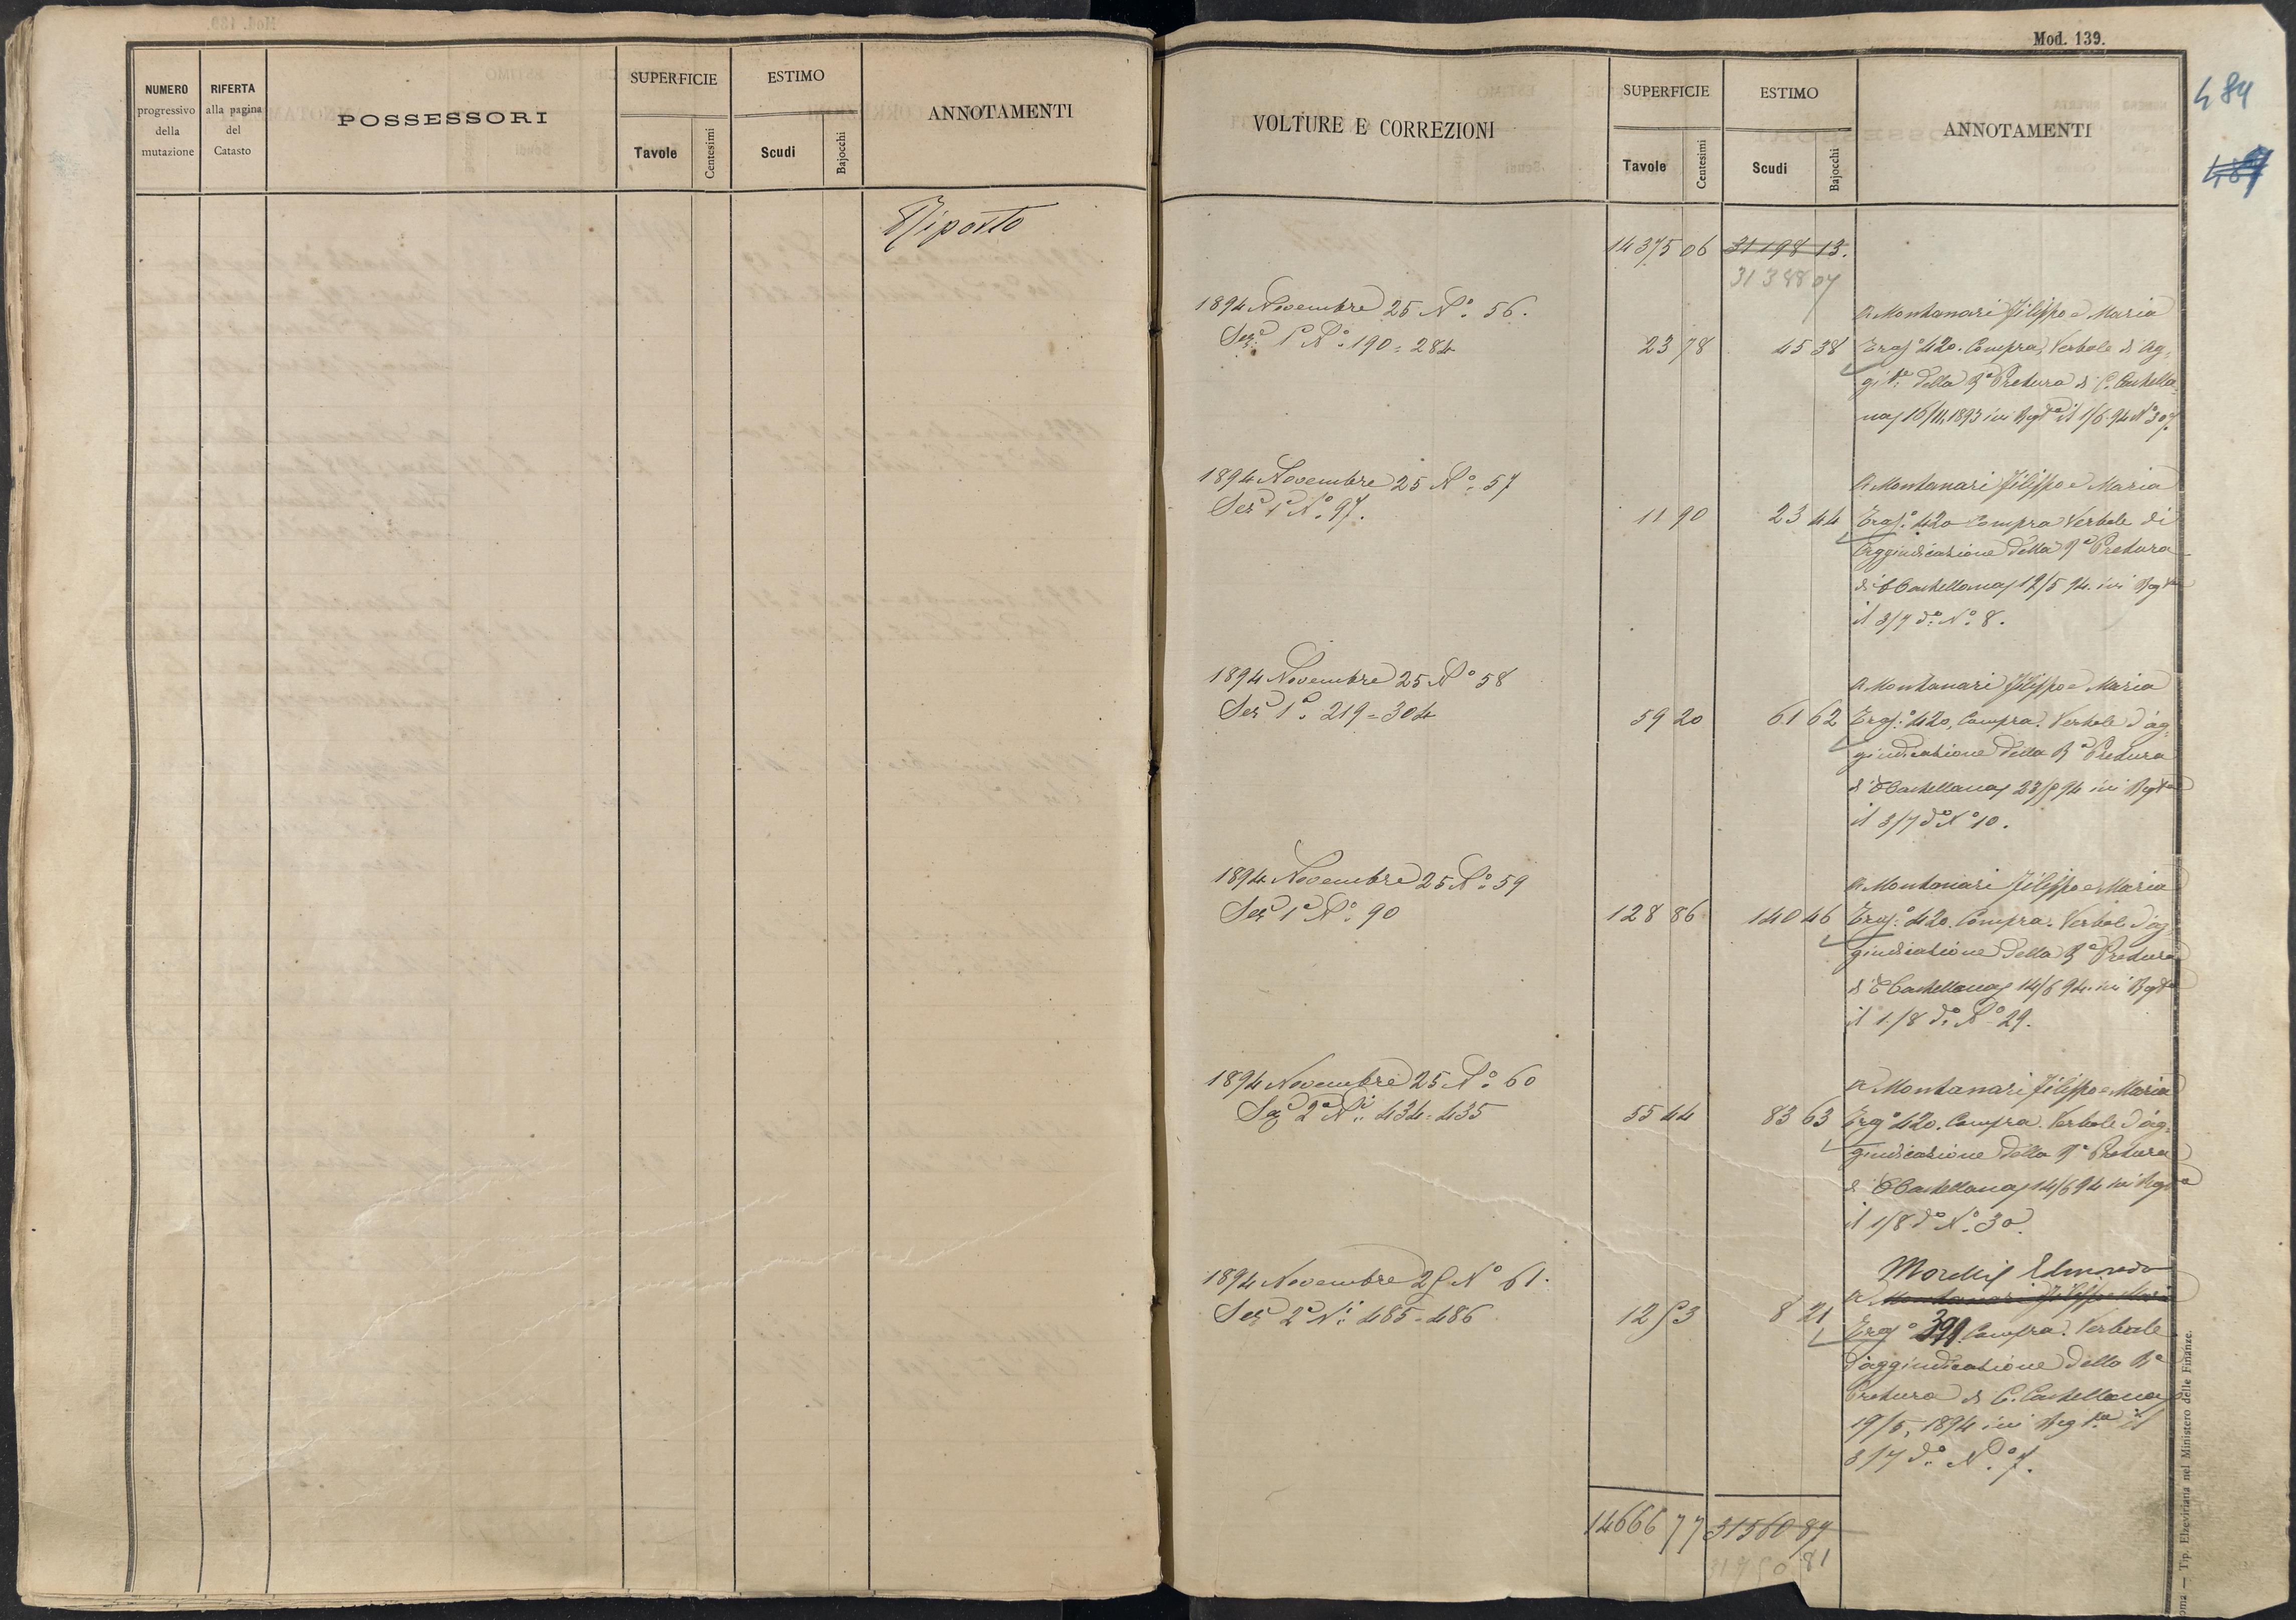 Mod. 139.
484
487
NUMERO progressivo della mutazione
RIFERTA alla pagina del Catasto
POSSESSORI
SUPERFICIE
Tavole
Centesimi
ESTIMO
Scudi
Bajocchi
ANNOTAMENTI
Riporto
VOLTURE E CORREZIONI
SUPERFICIE
Tavole
Centesimi
ESTIMO
Scudi
Bajocchi
ANNOTAMENTI
14375 06 31198 13.
31388 07
1894 Novembre 25 N.° 56.
Sez.e 1a N.i 190 = 284
23 78 45 38
A Montanari Filippo e Maria
420. Compra, Verbale d'Ag=
gi.ne della Ra Pretura di C. Castella
na, 16/11 1893 ivi Regta il 1/6.94 N° 307.
1894 Novembre 25 N.° 57
Sez.e 1a N.° 97.
11 90 23 44
A Montanari Filippo e Maria
420 Compra Verbale di
Aggiudicazione della Ra Pretura
di C Castellana, 12/5 94. ivi Regta
il 3/7 d.° N.° 8.
1894 Novembre 25 N° 58
Sez.e 1a. 219 = 304
59 20 61 62
A Montanari Filippo e Maria
420, Compra. Verbale d'ag=
giudicazione della Ra Pretura
di C Castellana, 94 ivi Regta
il 3/7 d° N° 10.
1894 Novembre 25 N.° 59
Sez.e 1a N.° 90
128 86 140 46
A Montanari Filippo e Maria
420. Compra. Verbale d'ag=
giudicazione della Ra Pretura
di C Castellana, 14/6 94. ivi Regta
il 1/8 d.° N° 29.
1894 Novembre 25 N.° 60
Sez.e 2a N.i 434 = 435
55 44 83 63
A Montanari Filippo e Maria
420. Compra. Verbale d'ag=
giudicazione della Ra Pretura
di C Castellana, 14/6 94 ivi Regta
il 1/8 d° N.° 30.
1894 Novembre 25 N° 61.
Sez.e 2a N.i 485 = 486
12 53 8 21
Edmondo
A Montanari Filippo e Maria
391. Compra. Verbale
d'aggiudicazione della Ra
Pretura di C. Castellana,
19/5, 1894 ivi Regta il
3/7 d.° N.° 7.
14666 77 31560 87
31750 81
Tip. Elzeviriana nel Ministero delle Finanze.